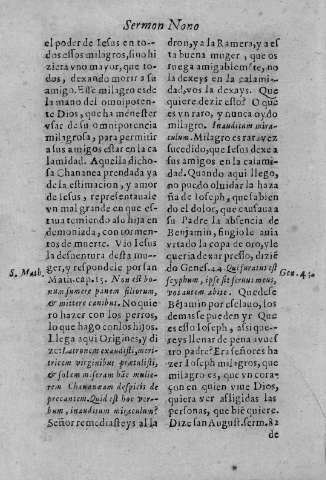 Sermon Nono
el poder de Iesus en to-
dos essos milagros, sino hi
ziera vno mayor, que to-
dos, dexando morir a su
amigo. Esse milagro es de
la mano del omnipoten-
te Dios, que ha menester
vsar de su omnipotencia
milagrosa, para permitir
a sus amigos estar en la ca
lamidad. Aquella dicho-
sa Chananea prendada ya
de la estimacion, y amor
de Iesus, representauale
vn mal grande en que es-
taua temiendo a su hija en
demoniada, con tormen-
tos de muerte. Vio Iesus
la desuentura desta mu-
ger, y respondele por san
S. Math. Math. cap. 15. Non est bo-
num sumere panem filiorum,
& mittere canibus. No quie
ro hazer con los perros,
lo que hago con los hijos.
Llega aqui Origines, y di
ze: Latronem exaudisti, meri-
tricem virginibus prætulisti,
& solem miseram hãc mulie-
rem Chananæam despicis de
precantem. Quid est hoc ver-
bum, inauditum miraculum?
Señor remediasteys al la
dron, y a la Ramera, y a es
ta buena muger, que os
ruega amigablemẽte, no
la dexeys en la calami-
dad, vos la dexays. Que
quiere dezir esto? O que
es vn raro, y nunca oydo
milagro. Inauditum mira-
culum. Milagro es rar vez
sucedido, que Iesus dexe a
sus amigos en la calami-
dad. Quando aqui llego,
no puedo oluidar la haza
ña de Ioseph, que sabien
do el dolor, que causaua a
su Padre la absencia de
Benjamin, fingiole auia
urtado la copa de oro, y le
queria dexar presso, dizié
do Genes. 44 Qui furatus est
scyphum, ipse sit seruus meus,
vos autem abite. Quedese
Gen. 43.
Bẽjamin por esclauo, los
demas se pueden yr Que
es esso Ioseph, assi que-
reys llenar de pena a vues
tro padre? Era señores ha
zer Ioseph milagros, que
milagro es, que vn cora-
çon en quien viue Dios,
quiera ver afligidas las
personas, que biẽ quiere.
Dize san August. serm. 82
de